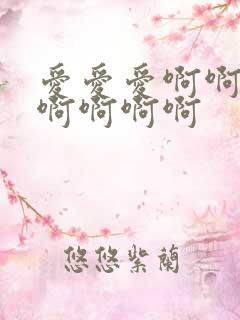 爱爱爱啊啊
啊啊啊啊
悠悠紫蘭